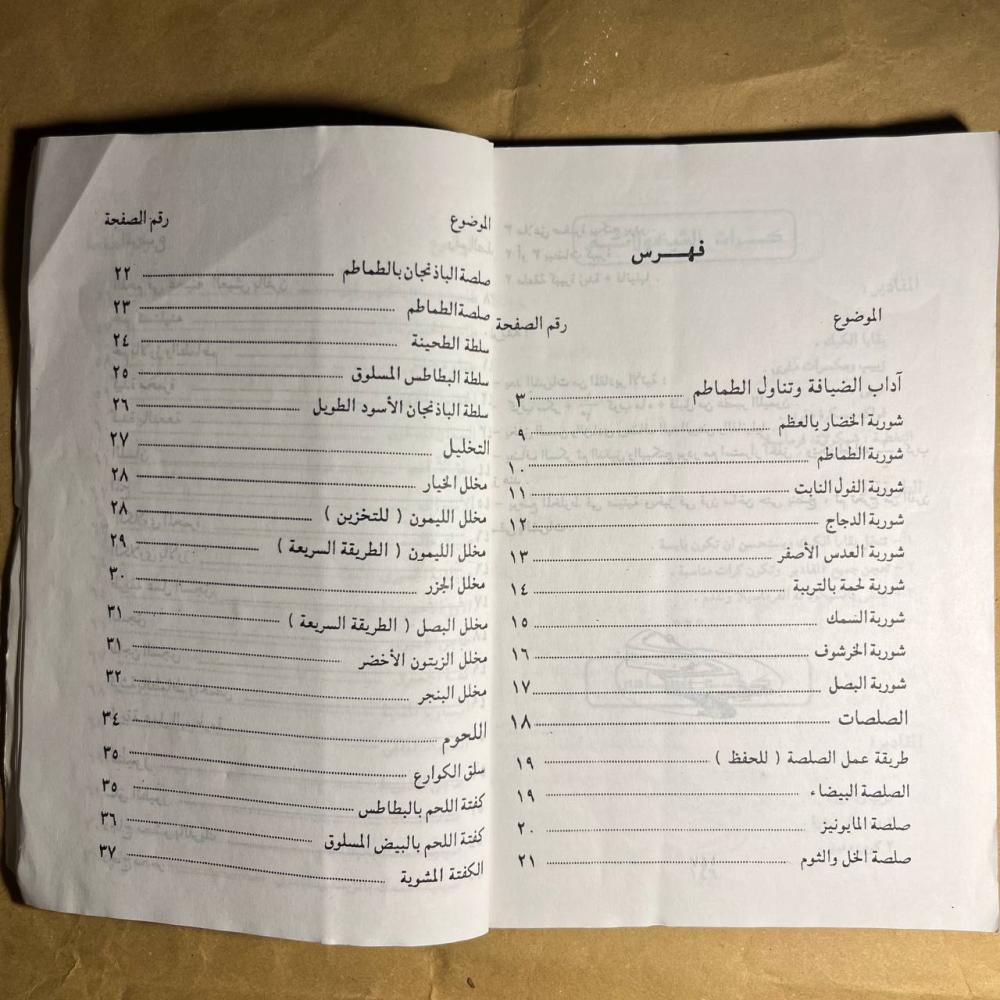 فهرس
الموضوع رقم الصفحة
آداب الضيافة وتناول الطماطم ٣
شوربة الخضار بالعظم ٩
شوربة الطماطم ١٠
شوربة الفول النابت ١١
شوربة الدجاج ١٢
شوربة العدس الأصفر ١٣
شوربة لحمة بالتربية ١٤
شوربة السمك ١٥
شوربة الخرشوف ١٦
شوربة البصل ١٧
الصلصات ١٨
طريقة عمل الصلصة ( للحفظ ) ١٩
الصلصة البيضاء ١٩
صلصة المايونيز ٢٠
صلصة الخل والثوم ٢١
الموضوع رقم الصفحة
صلصة الباذنجان بالطماطم ٢٢
صلصة الطماطم ٢٣
سلطة الطحينة ٢٤
سلطة البطاطس المسلوق ٢٥
سلطة الباذنجان الأسود الطويل ٢٦
التخليل ٢٧
مخلل الخيار ٢٨
مخلل الليمون ( للتخزين ) ٢٨
مخلل الليمون ( الطريقة السريعة ) ٢٩
مخلل الجزر ٣٠
مخلل البصل ( الطريقة السريعة ) ٣١
مخلل الزيتون الأخضر ٣١
مخلل البنجر ٣٢
اللحوم ٣٤
سلق الكوارع ٣٥
كفتة اللحم بالبطاطس ٣٥
كفتة اللحم بالبيض المسلوق ٣٦
الكفتة المشوية ٣٧